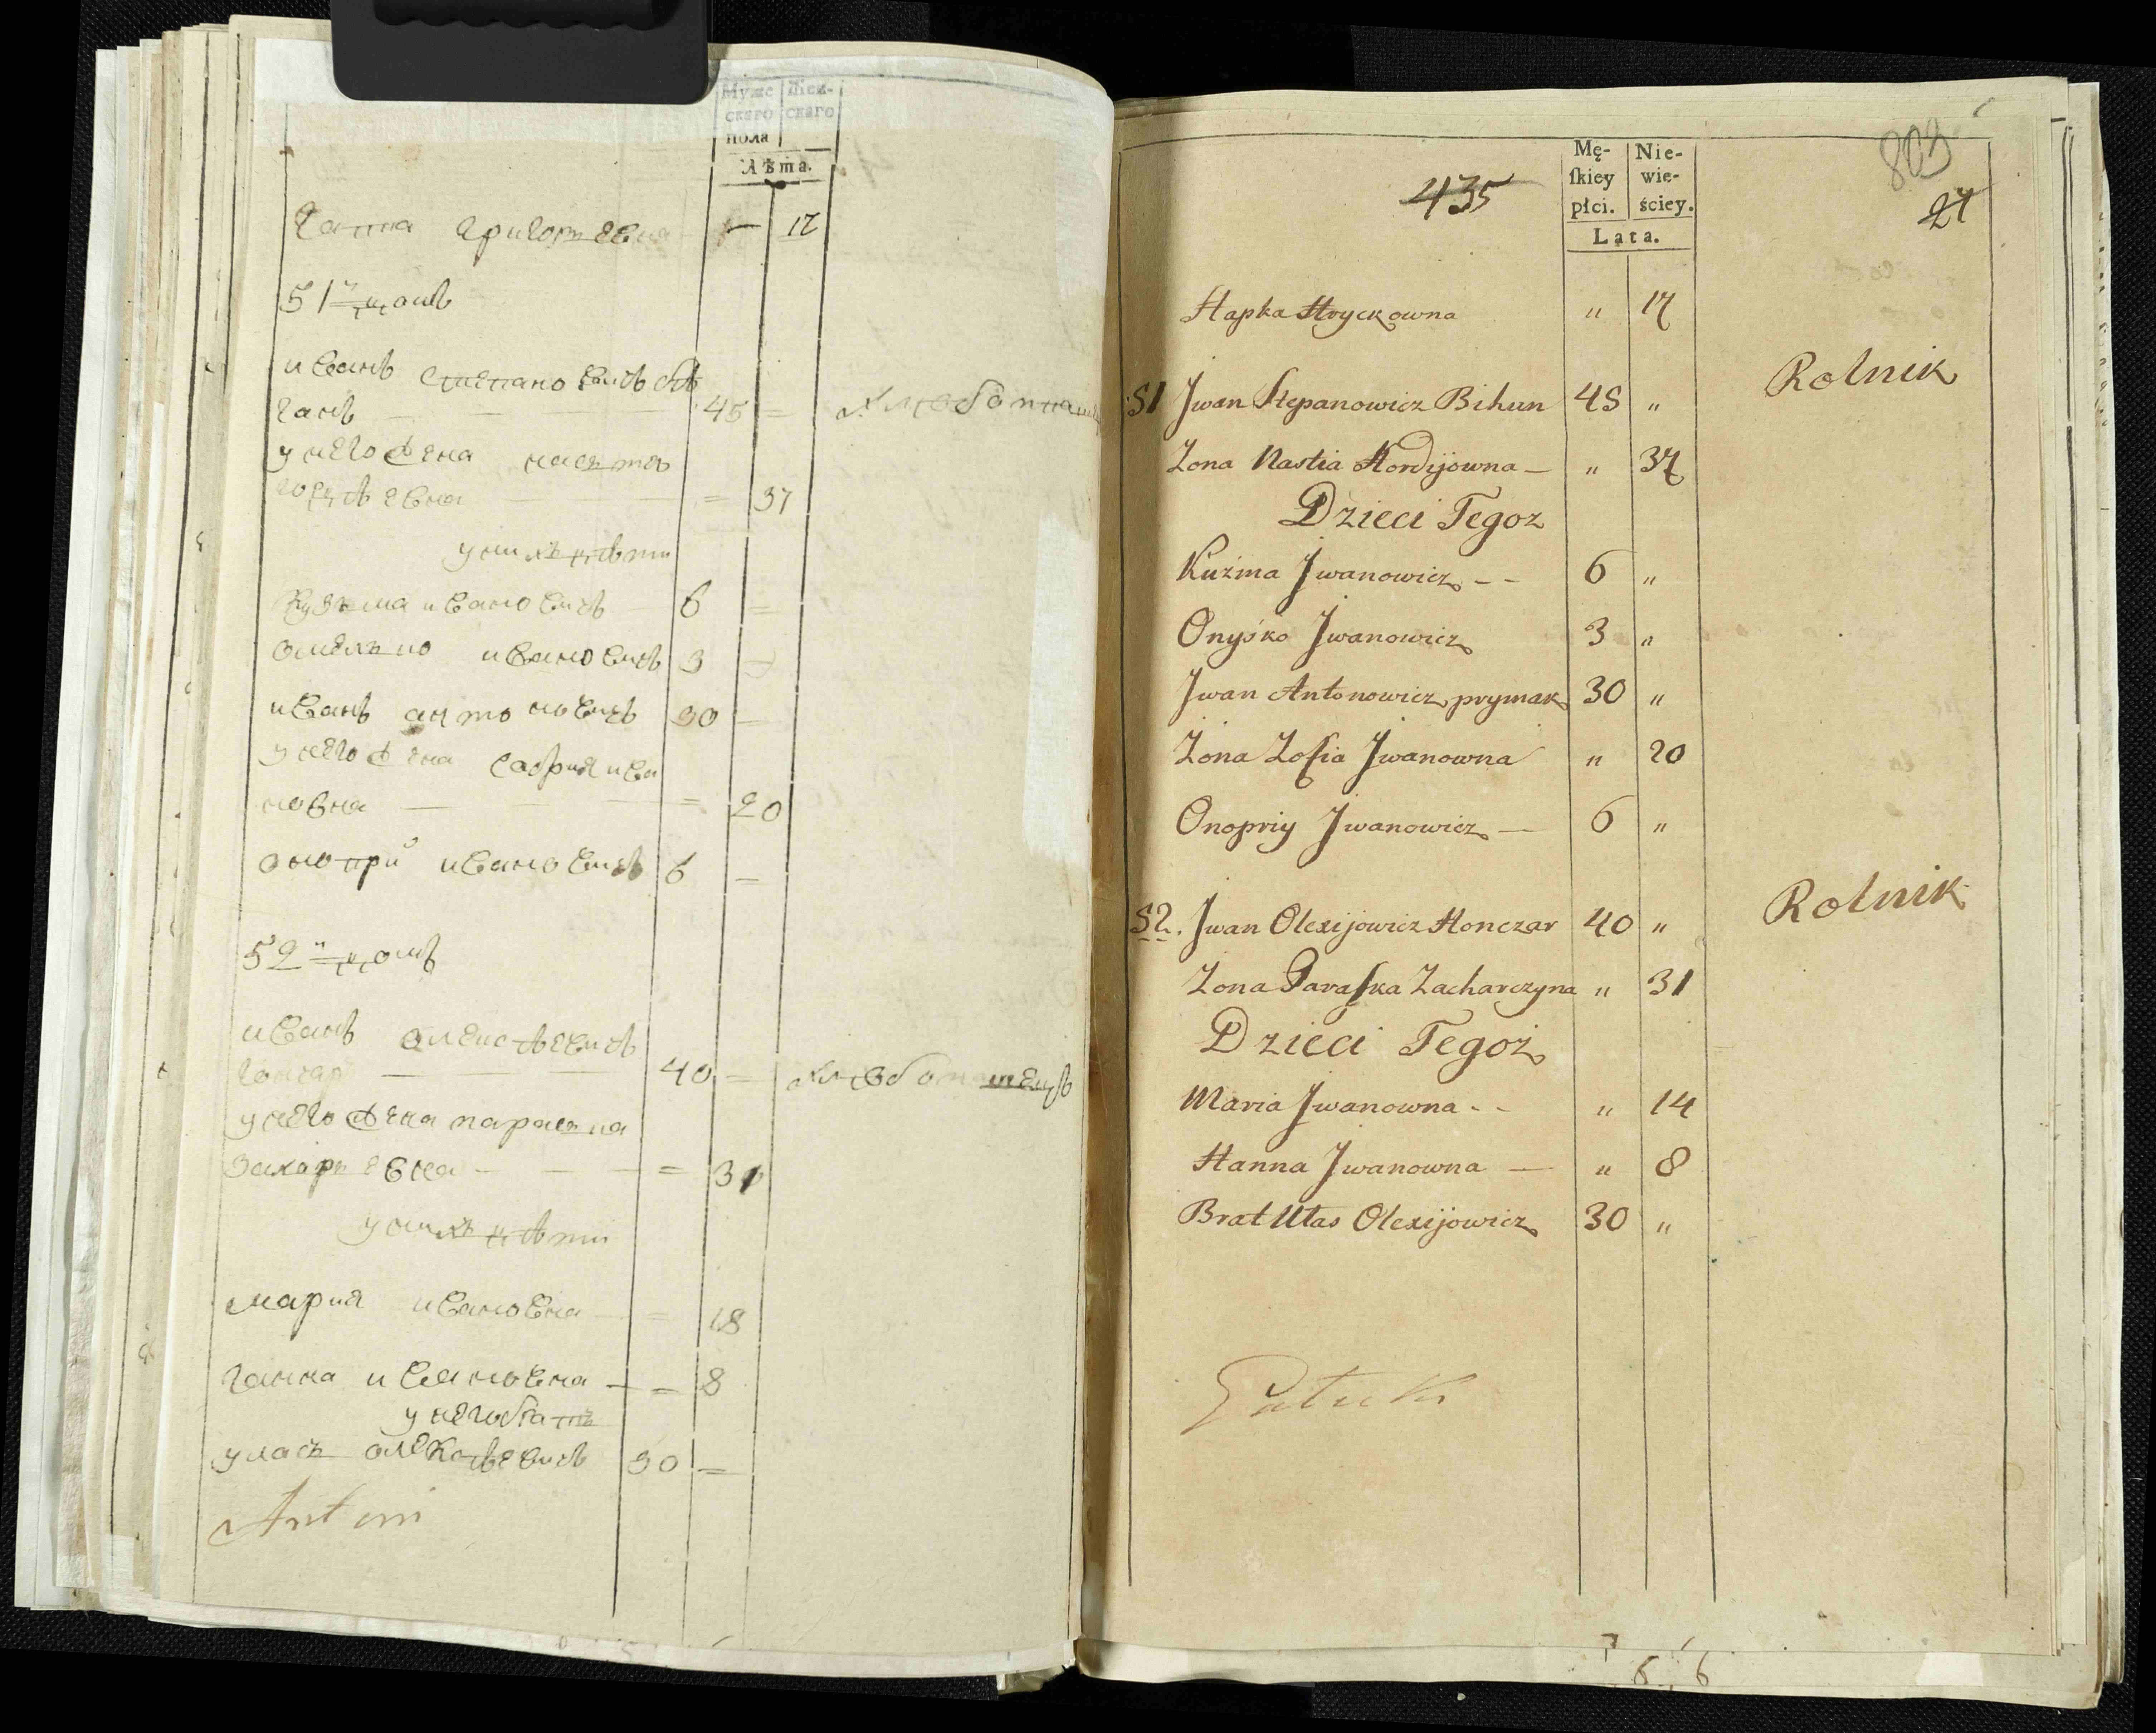 Муже
скаго
Жен-
скаго
пола
Лѣта.
Гапка Григорьевна — 17
51й домъ
иванъ степановичъ бѣ
ганъ — 45 = хлебопашец
у него жена насътя
гордѣевна — = 37
у нихъ дѣти
кузьма ивановичъ 6 =
ивановичъ 3 =
иванъ антоновичъ 30 =
у него жена софия ива
новна — = 20
онопрiй ивановичъ 6 =
52й домъ
иванъ олексѣевичъ
гончар — 40 = хлебопашецъ
у него жена параска
захарьевна — = 31
у нихъ дѣти
мария ивановна = 18
ганна ивановна — = 8
у него братъ
уласъ олексѣевичъ 30 =
Antoni
435
Mę-
ſkiey
płci.
Nie-
wie-
ściey.
Lata.
803
27
Hapka Hryckowna " 17
51 Jwan Stepanowicz Bihun 45 " Rolnik
Zona Nastia Hordijowna — " 37
Dzieci Tegoz
Kuźma Jwanowicz - - 6 "
Onyśko Jwanowicz 3 "
Jwan Antonowicz prymak 30 "
Żona Zofia Jwanowna " 20
Onopriy Jwanowicz — 6 "
52. Jwan Olexijowicz Honczar 40 " Rolnik
Zona Paraſka Zacharczyna " 31
Dzieci Tegoż
Maria Jwanowna - - " 14
Hanna Jwanowna — " 8
Brat Ułas Olexijowicz 30 "